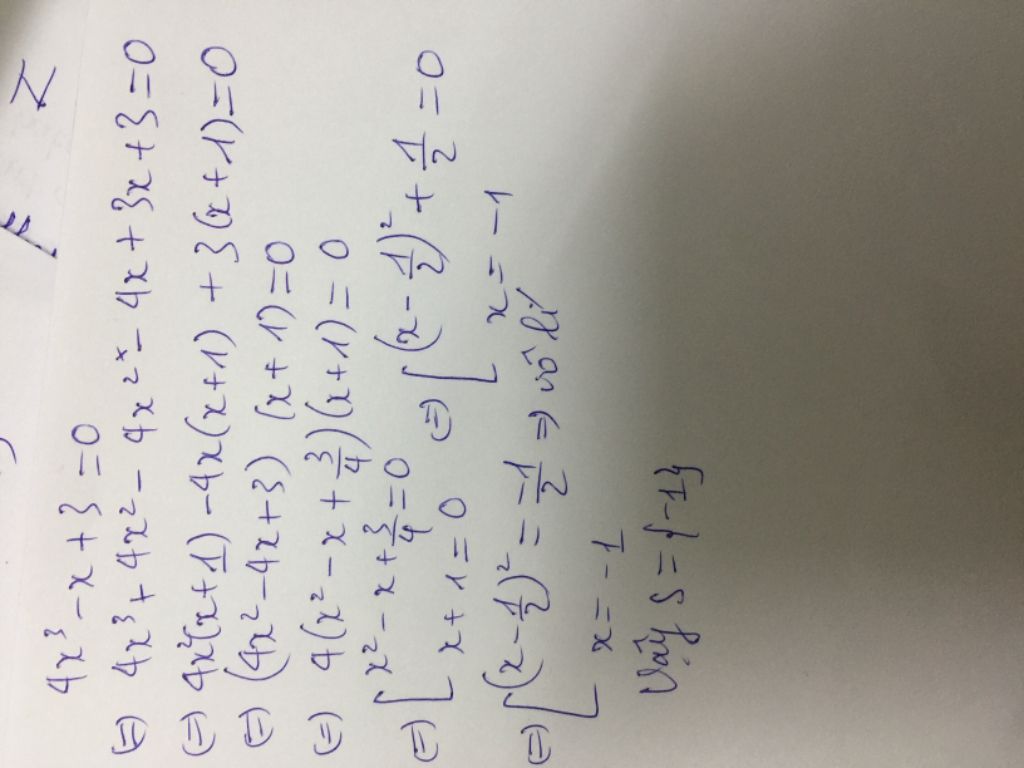 4x³ - x + 3 = 0
(=) 4x³ + 4x² - 4x² - 4x + 3x + 3 = 0
(=) 4x²(x + 1) - 4x(x + 1) + 3(x + 1) = 0
(=) (4x² - 4x + 3) (x + 1) = 0
(=) 4(x² - x + 3/4)(x + 1) = 0
(=) [ x² - x + 3/4 = 0 (=) [ (x - 1/2)² + 1/2 = 0
x + 1 = 0 x = -1
(=) [ (x - 1/2)² = -1/2 => vô lí
x = -1
Vậy S = {-1}